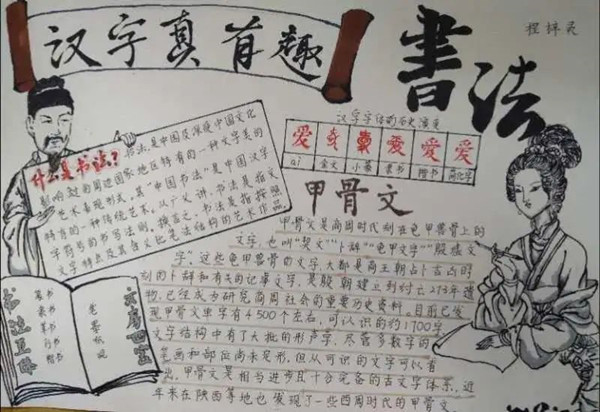 汉字真有趣
书法
程梓灵
什么是书法?
书法是中国及深受中国文化
影响过的周边国家地区特有的一种文字美的
艺术表现形式。其"中国书法"是中国汉字
特有的一种传统艺术。从广义讲,书法是指文
字符号的书写法则。换言之,书法是指按照
文字特点及其含义,以其书体笔法结构的艺术作品
汉字字体的历史演变
爱
ai
金文
小篆
隶书
楷书
简化字
甲骨文
甲骨文是商周时代刻在龟甲兽骨上的
文字,也叫"契文""卜辞""龟甲文字""殷墟文
字"。这些龟甲兽骨的文字大都是商王朝占卜吉凶时
刻的卜辞和有关的记事文字,是殷朝建立到纣亡273年遗
物,已经成为研究商周社会的重要历史资料。目前已发
现甲骨文单字有4500个左右,可认识的约1700字
文字结构中有了大批的形声字,尽管多数字的
笔画和部位尚未定形,但从可识的文字可以看
出,甲骨文是相当进步且十分完备的古文字体系。近
年来在陕西等地也发现了一些西周时代的甲骨文
书法五体
篆书
隶书
草书
行书
楷书
文房四宝
笔墨纸砚